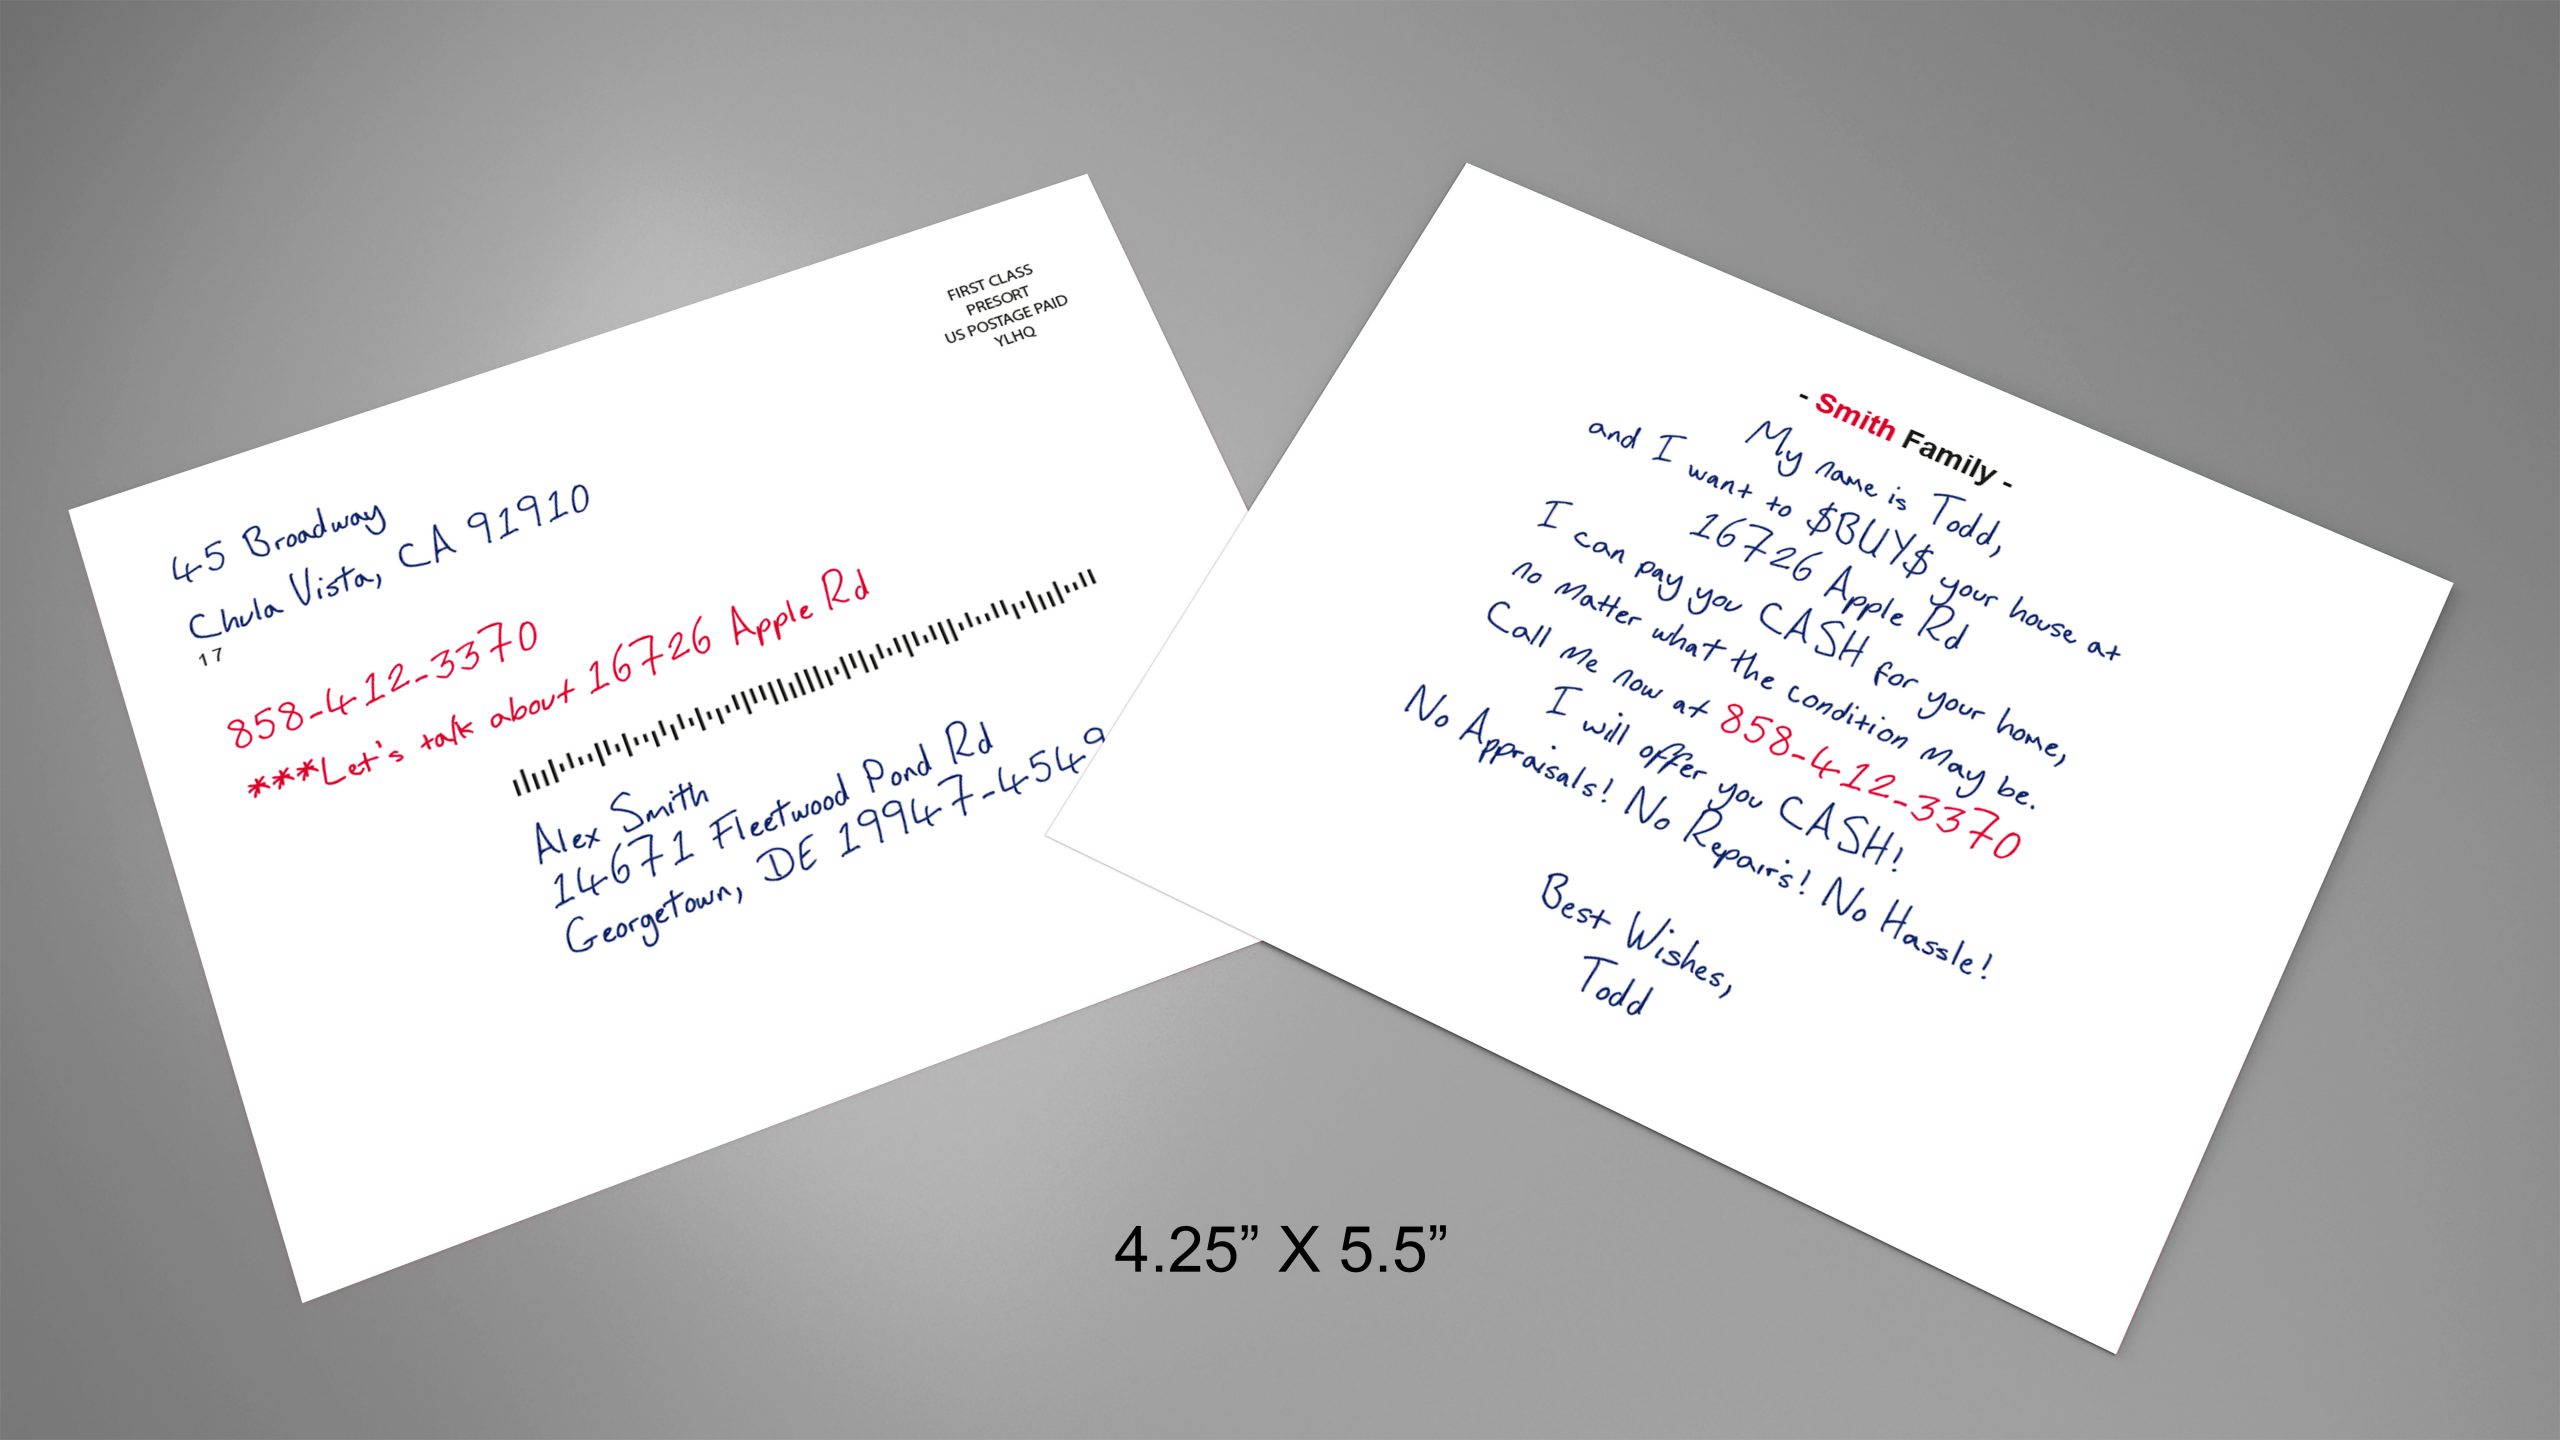 FIRST CLASS
PRESORT
US POSTAGE PAID
YLHQ
45 Broadway
Chula Vista, CA 91910
17
858-412-3370
***Let's talk about 16726 Apple Rd
Alex Smith
14671 Fleetwood Pond Rd
Georgetown, DE 19947-4549
- Smith Family -
My name is Todd,
and I want to $BUY$ your house at
16726 Apple Rd
I can pay you CASH for your home,
no matter what the condition may be.
Call me now at 858-412-3370
I will offer you CASH!
No Appraisals! No Repairs! No Hassle!
Best Wishes,
Todd
4.25” X 5.5”